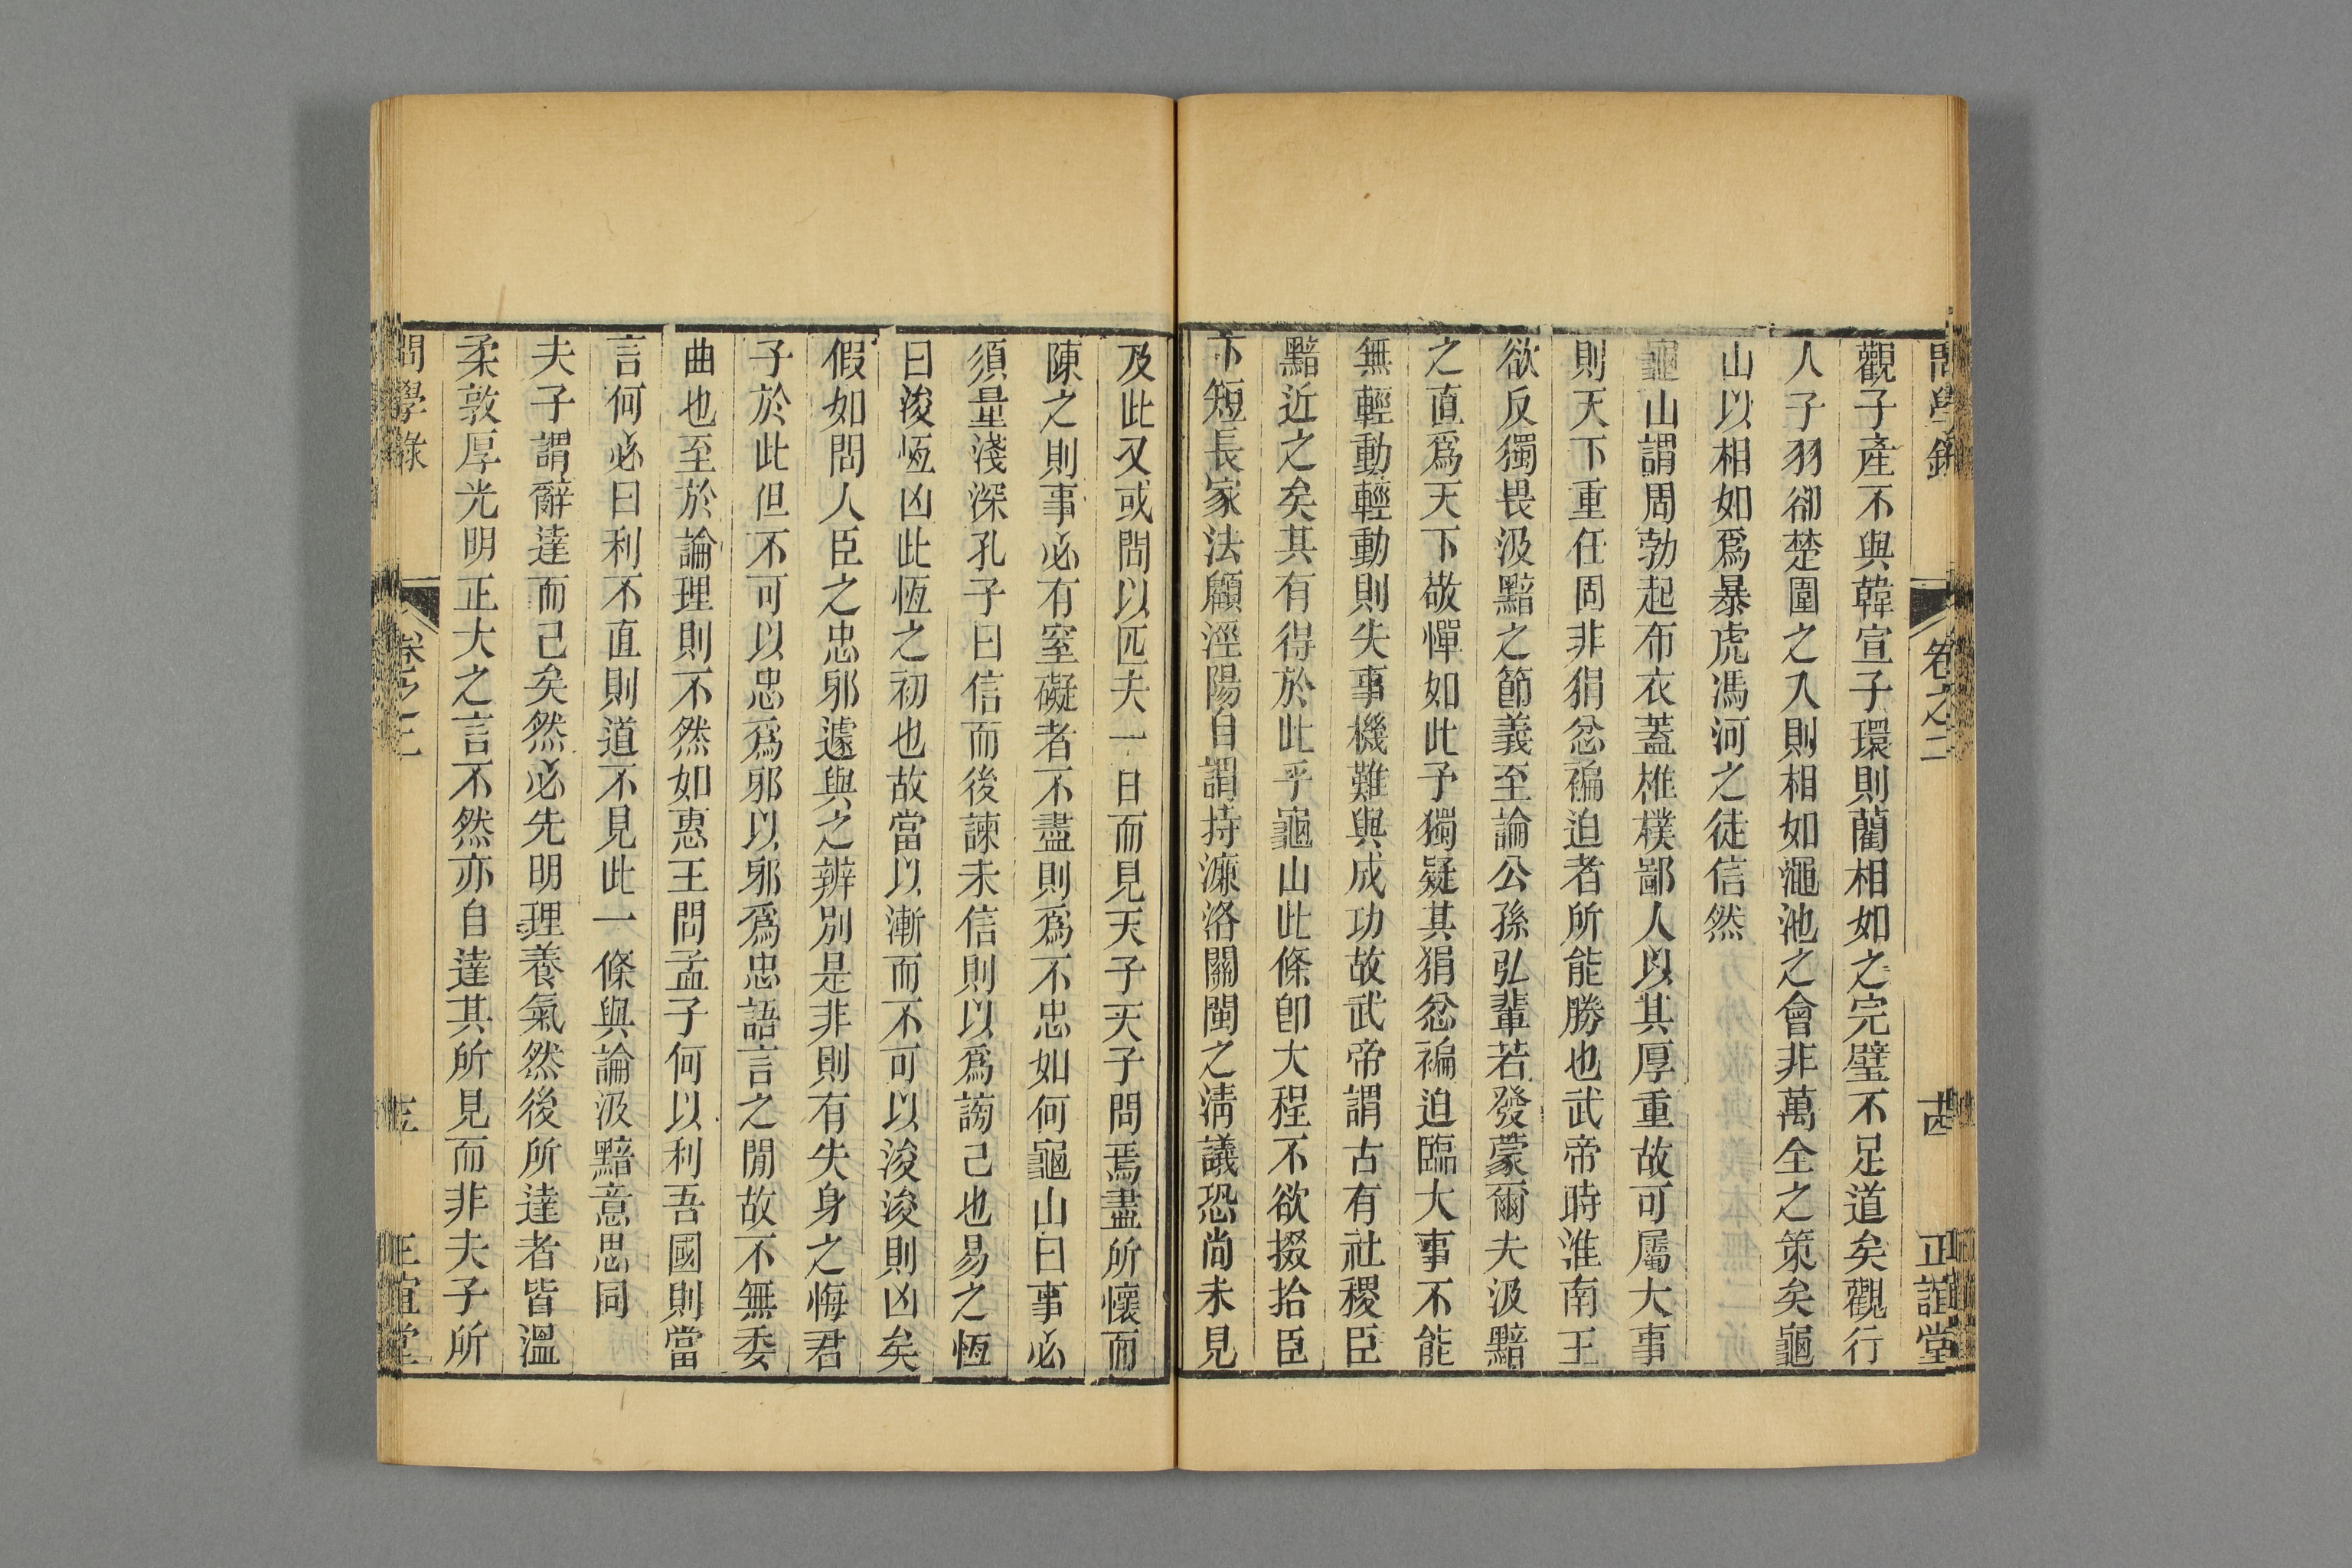 問學錄 卷之二 古 正誼堂
觀子產不與韓宣子環則藺相如之完璧不足道矣觀行
人子羽卻楚圍之入則相如澠池之會非萬全之策矣龜
山以相如爲暴虎馮河之徒信然
龜山謂周勃起布衣蓋椎樸鄙人以其厚重故可屬大事
則天下重任固非狷忿褊迫者所能勝也武帝時淮南王
欲反獨畏汲黯之節義至論公孫弘輩若發蒙爾夫汲黯
之直爲天下敬憚如此予獨疑其狷忿褊迫臨大事不能
無輕動輕動則失事機難與成功故武帝謂古有社稷臣
黯近之矣其有得於此乎龜山此條卽大程不欲掇拾臣
下短長家法顧涇陽自謂持濂洛關閩之淸議恐尚未見
及此又或問以匹夫一日而見天子天子問焉盡所懷而
陳之則事必有窒礙者不盡則爲不忠如何龜山曰事必
須量淺深孔子曰信而後諫未信則以爲謗己也易之恆
曰浚恆凶此恆之初也故當以漸而不可以浚浚則凶矣
假如問人臣之忠邪遽與之辨別是非則有失身之悔君
子於此但不可以忠爲邪以邪爲忠語言之閒故不無委
曲也至於論理則不然如惠王問孟子何以利吾國則當
言何必曰利不直則道不見此一條與論汲黯意思同
夫子謂辭達而已矣然必先明理養氣然後所達者皆溫
柔敦厚光明正大之言不然亦自達其所見而非夫子所
問學錄 卷之二 正誼堂